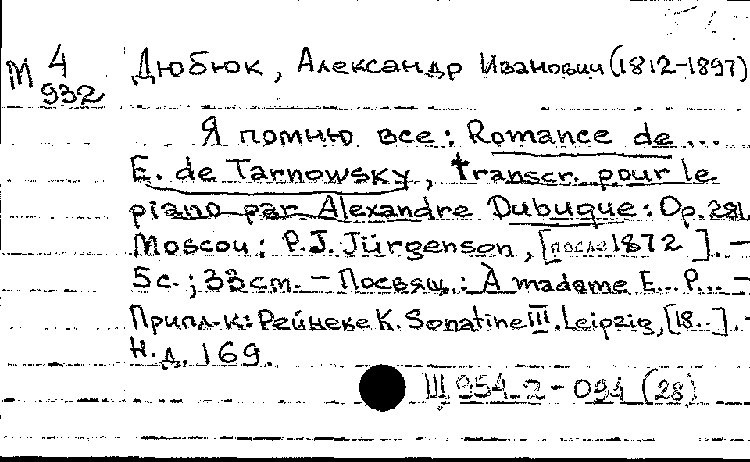 М 4 932
Дюбюк, Александр Иванович (1812-1897)
Я помню все: Romance de ...
E. de Tarnowsky, transcr. pour le
piano par Alexandre Dubuque: Op. 281.
Moscou: P. J. Jürgenson, [после 1872 ]. –
5 с.; 33 см. – Посвящ.: À madame E... P... –
Припл. к: Рейнеке К. Sonatine III. Leipzig, [18..]. –
Н. д. 169.
Щ 954-2 - 094 (28)